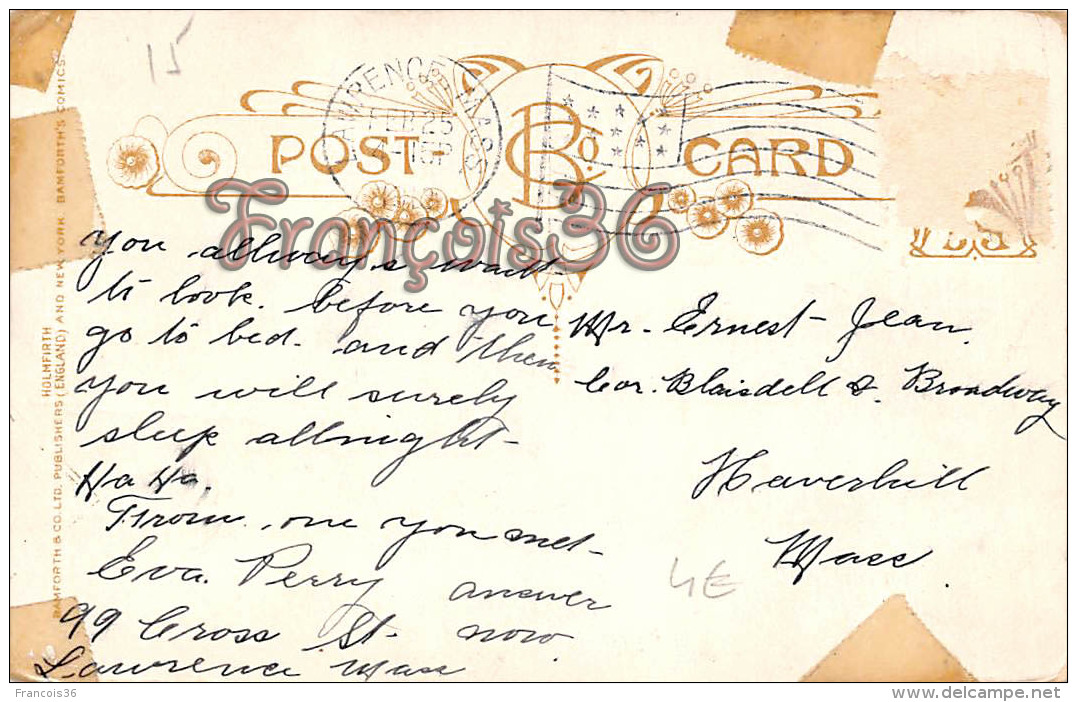 15
LAWRENCE MASS
FEB 25
POST CARD
B Co
François36
you allways want
to look. before you
go to bed. and then
you will surely
sleep allnight
Ha Ha.
From one you met
Eva. Perry answer
99 Cross St. now
Lawrence Mass
Mr. Ernest Jean
Cor. Blaisdell & Broadway
Haverhill
Mass
4E
HOLMFIRTH
BAMFORTH & CO. LTD. PUBLISHERS (ENGLAND) AND NEW YORK. BAMFORTH'S COMICS.
Francois36
www.delcampe.net